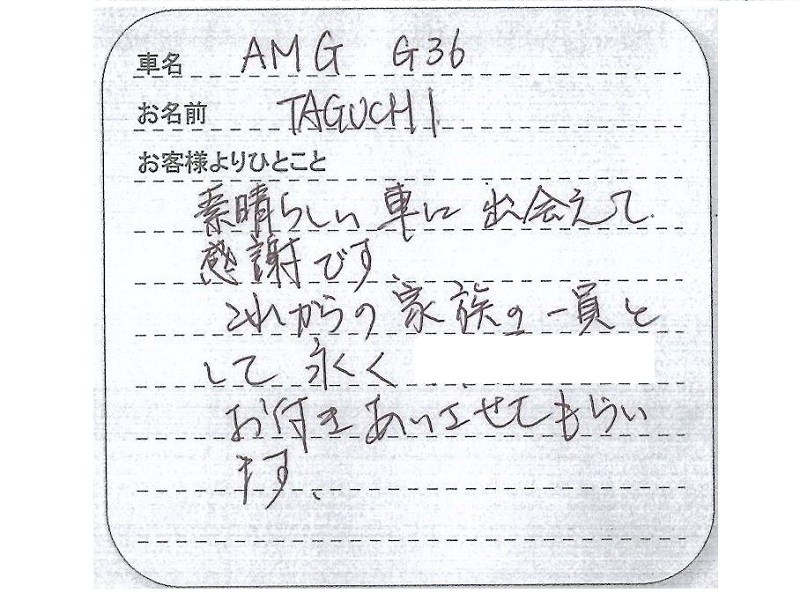 車名 AMG G36
お名前 TAGUCHI
お客様よりひとこと
素晴らしい車に出会えて
感謝です、
これからの家族の一員と
して永く
お付きあいさせてもらい
ます、